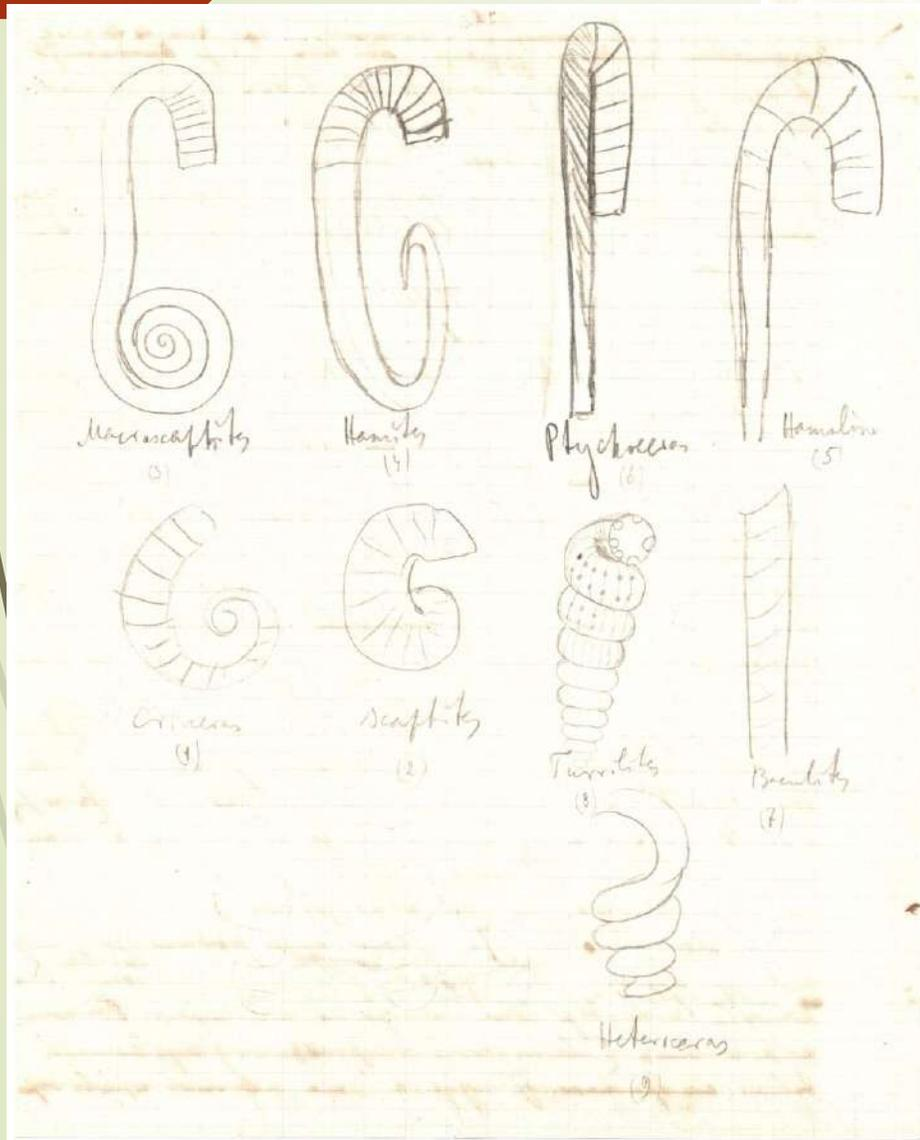 Macroscaphites
(3)
Hamites
(4)
Ptychoceras
(6)
Hamulina
(5)
Crioceras
(1)
Scaphites
(2)
Turrilites
(8)
Baculites
(7)
Heteroceras
(9)